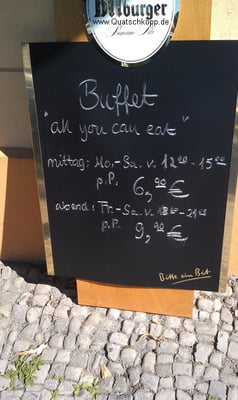 Bitburger
www.Quatschkopp.de
Premium Pils
Buffet
"all you can eat"
mittag: Mo.-Sa. v. 12⁰⁰-15⁰⁰
p.P. 6,⁹⁰ €
abend: Fr.-Sa. v. 18³⁰-21⁰⁰
p.P. 9,⁹⁰ €
Bitte ein Bit